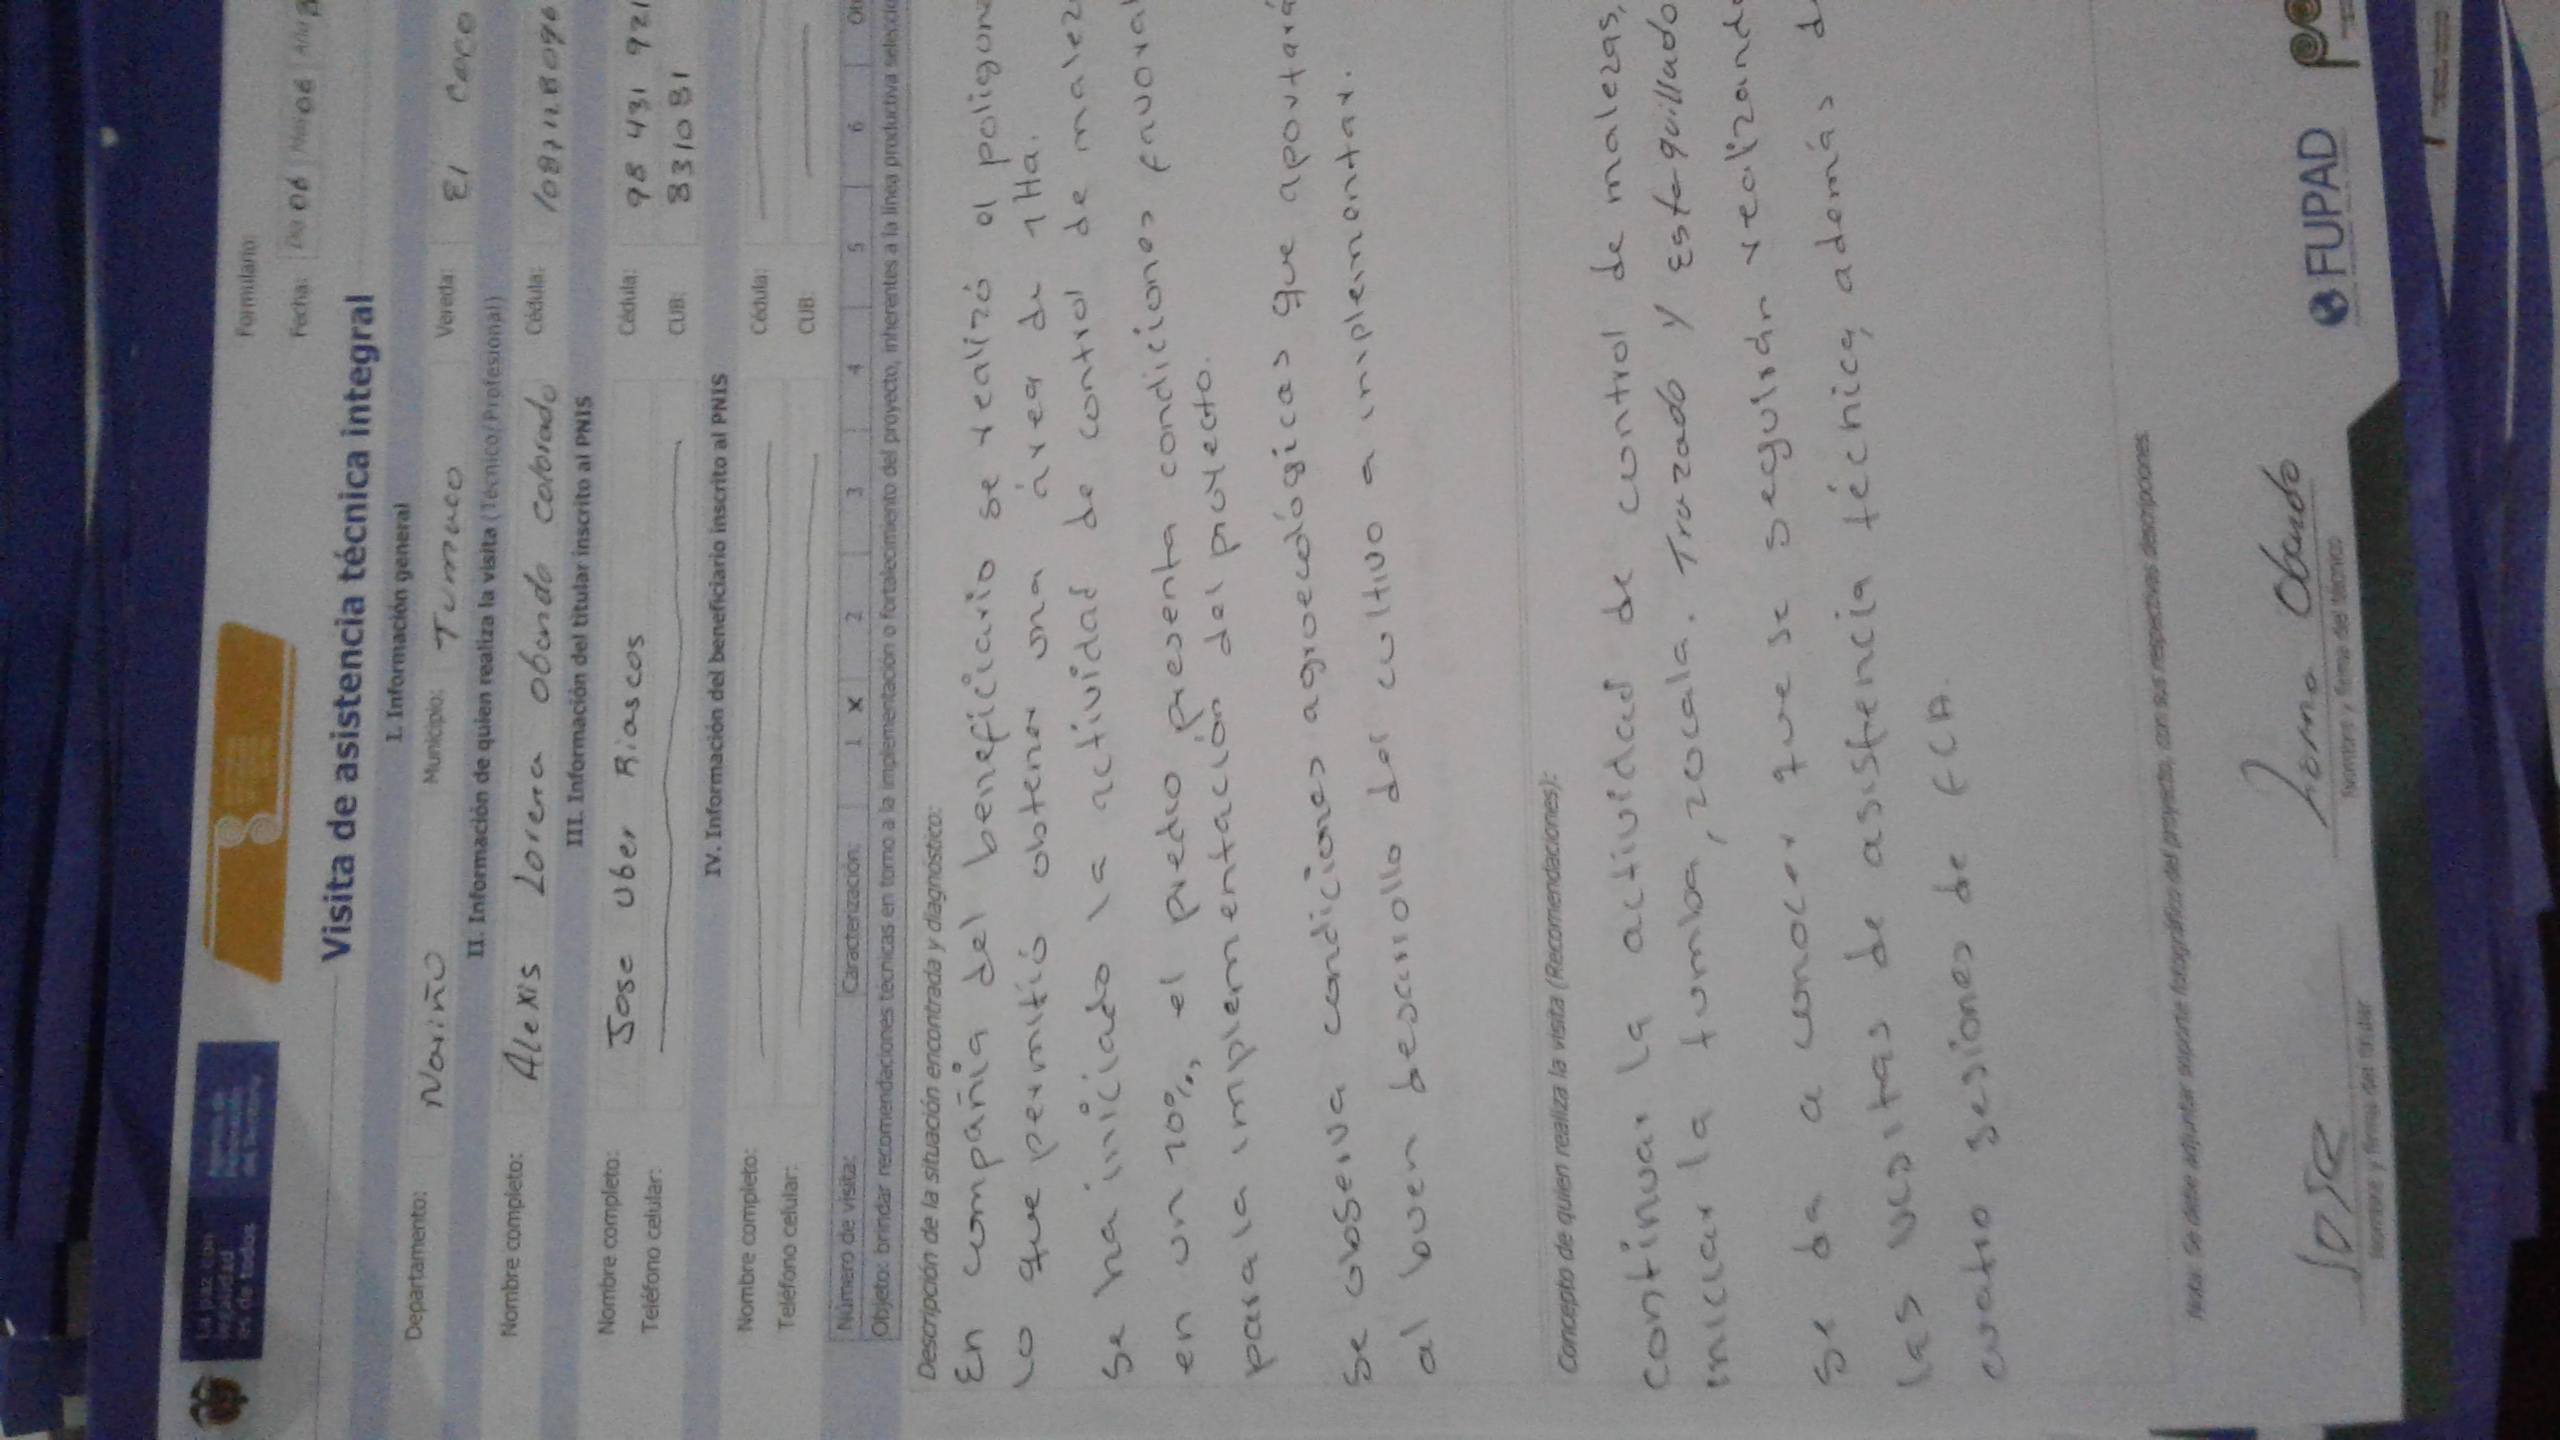 La paz con
legalidad
es de todos
Formulario:
Fecha: Día 06 Mes 06 Año
Visita de asistencia técnica integral
I. Información general
Departamento: Nariño Municipio: Tumaco Vereda: El Coco
II. Información de quien realiza la visita (Técnico/Profesional)
Nombre completo: Alexis Lorena Obando Cabrado Cédula:
III. Información del titular inscrito al PNIS
Nombre completo: Jose Uber Riascos Cédula: 98 431 921
Teléfono celular: CUB: 831081
IV. Información del beneficiario inscrito al PNIS
Nombre completo: Cédula:
Teléfono celular: CUB:
Número de visita: Caracterización: 1 X 2 3 4 5 6
Objeto: brindar recomendaciones técnicas en torno a la implementación o fortalecimiento del proyecto, inherentes a la línea productiva
Descripción de la situación encontrada y diagnóstico:
En compañia del beneficiario se realizó el poligono
lo que permitió obtener una área de 1Ha.
Se ha iniciado la actividad de control de
en un 20%, el predio presenta condiciones
para la implementación del proyecto.
Se observa condiciones agroecológicas que aportará
al buen desarrollo del cultivo a implementar.
Concepto de quien realiza la visita (Recomendaciones):
Continuar la actividad de control de malezas,
iniciar la tumba, zocala. Trazado y Estaquillado
Se da a conocer que se seguirán realizando
las visitas de asistencia técnica, además de
cuatro sesiones de ECA.
Nota: Se debe adjuntar soporte fotográfico del proyecto, con sus respectivas descripciones.
Lorena Obando
Nombre y firma del titular Nombre y firma del técnico
FUPAD